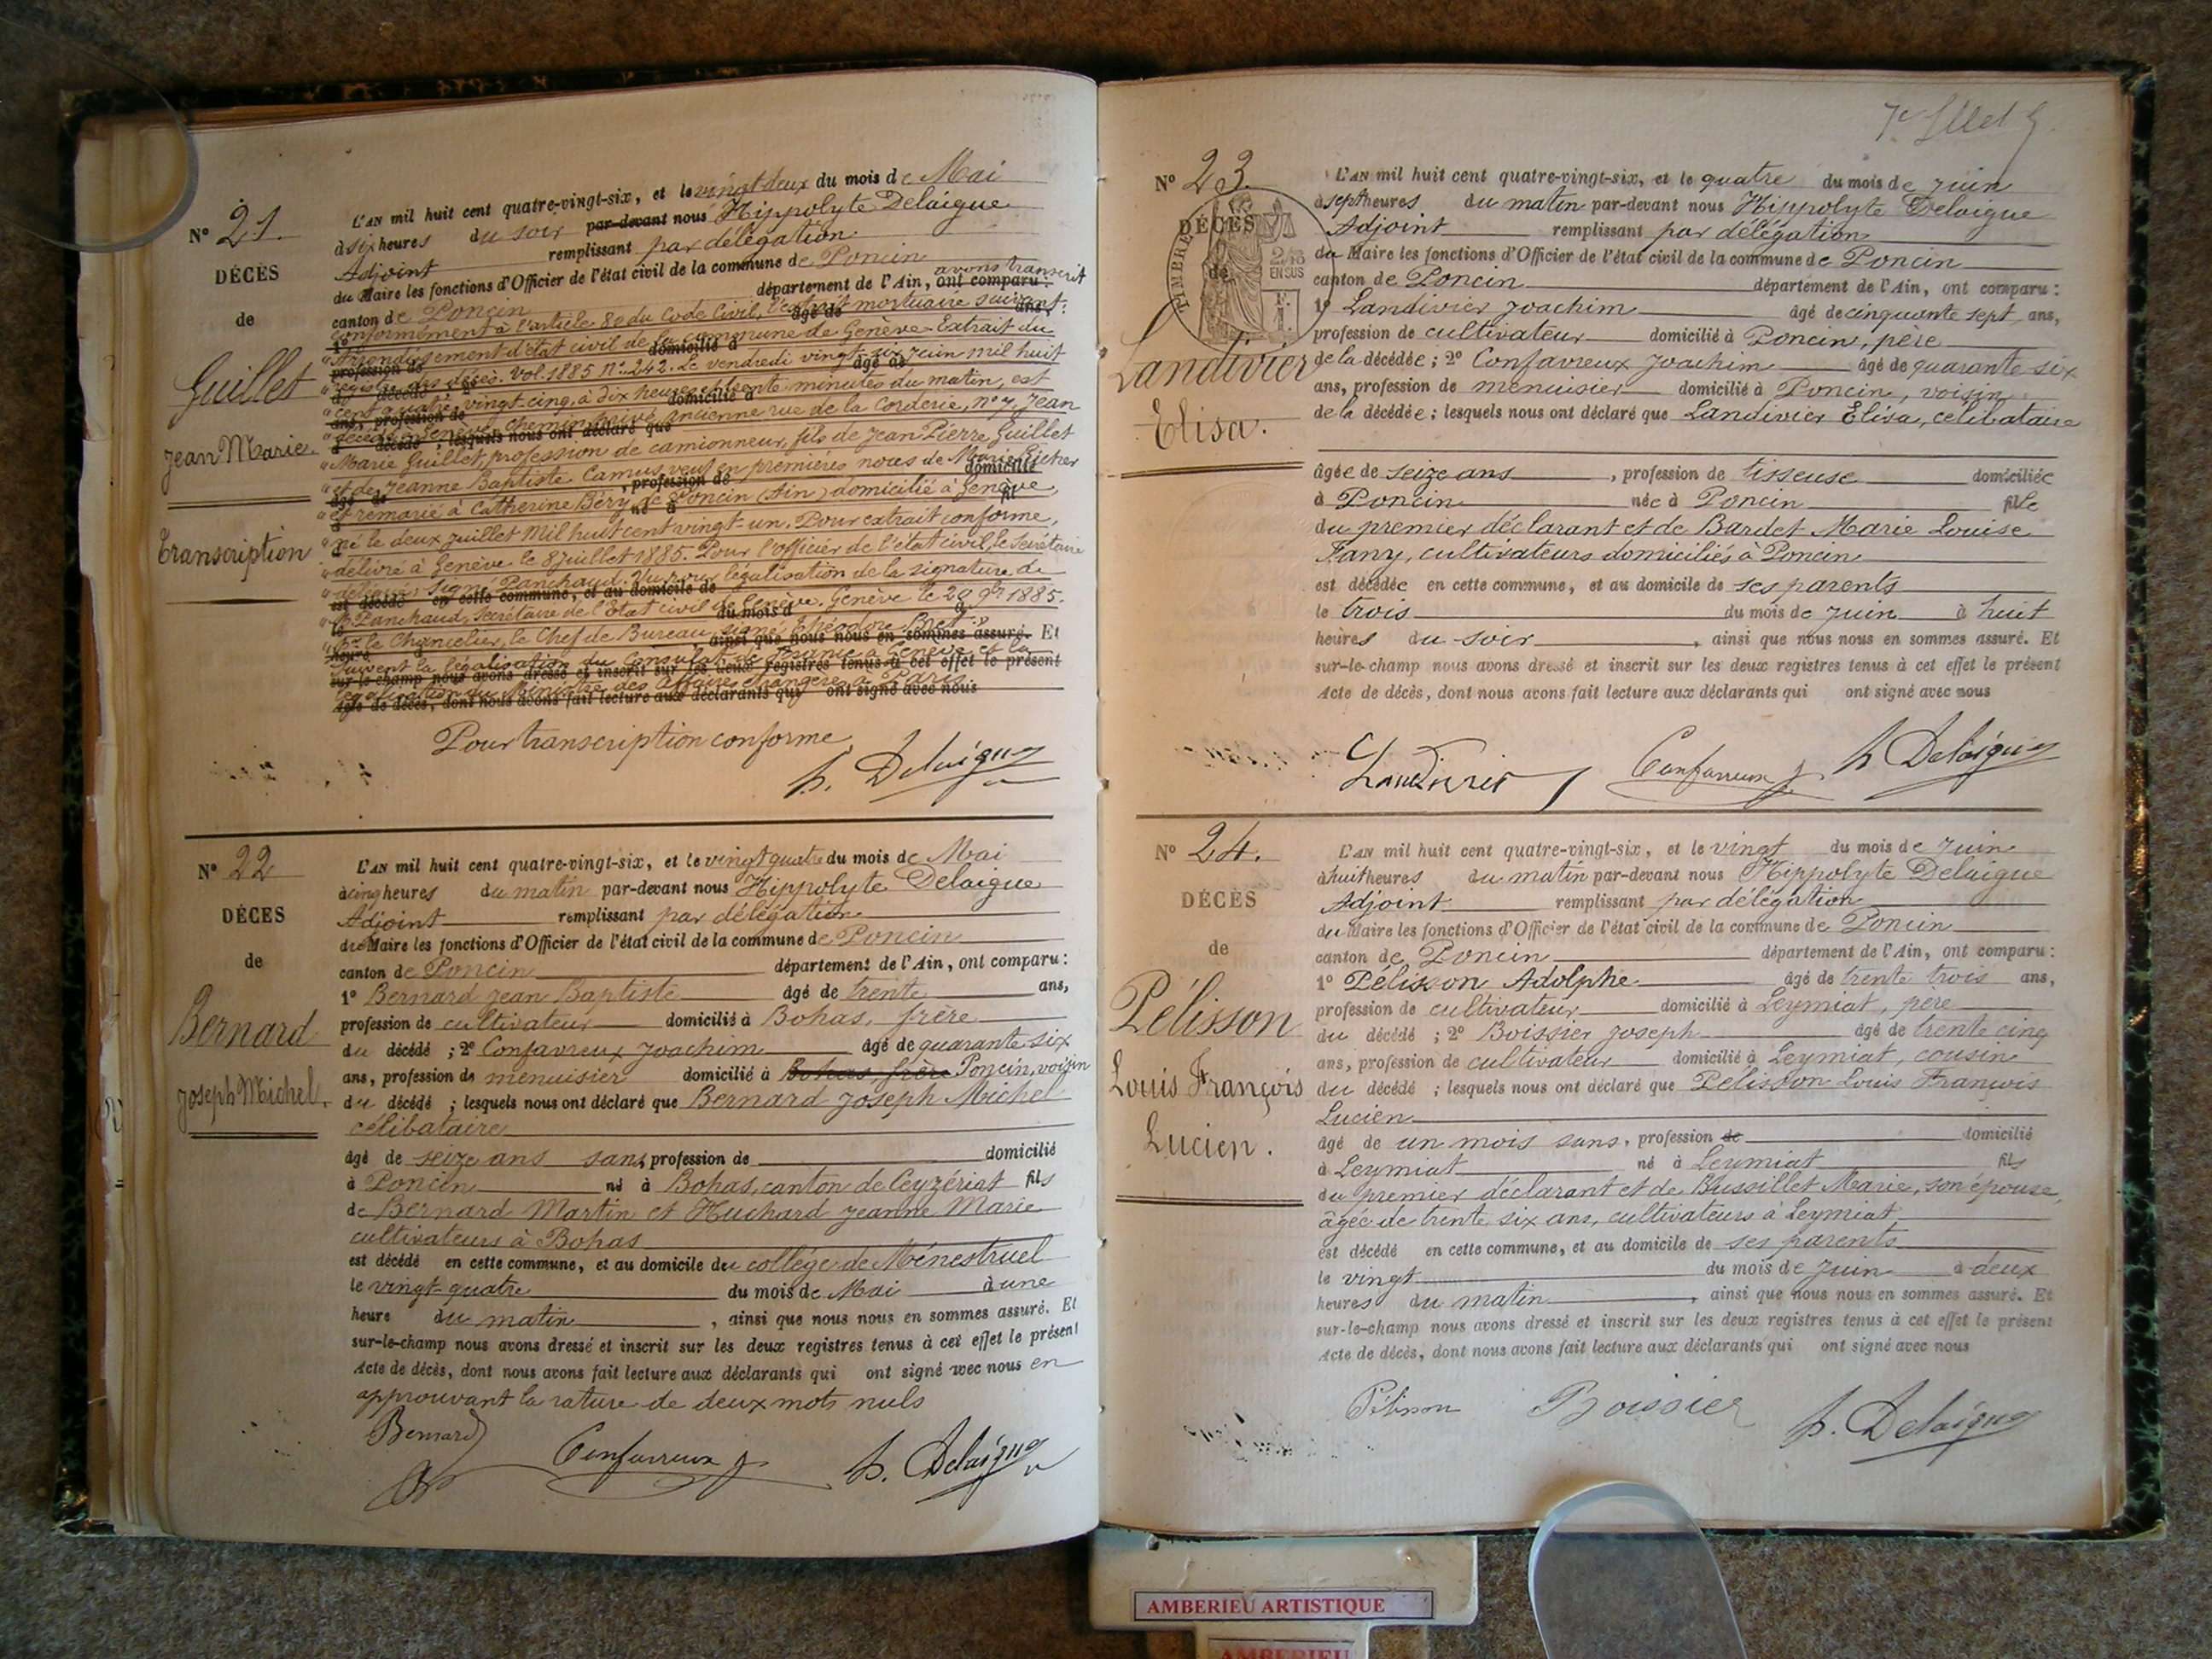 L'AN mil huit cent quatre-vingt-six, et le vingt deux du mois de Mai
N° 21.
à six heures du soir par-devant nous Hippolyte Delaigue
Adjoint remplissant par délégation
DÉCÈS
du Maire les fonctions d'Officier de l'état civil de la commune de Poncin
canton de Poncin département de l'Ain, ont comparu : avons transcrit
de
conformément à l'article 80 du Code Civil, l'extrait mortuaire suivant :
"Arrondissement d'état civil de la commune de Genève. Extrait du
"registre des décès. Vol. 1885 N° 242. Le vendredi vingt-six juin mil huit
Guillet
"cent quatre-vingt-cinq, à dix heures et trente minutes du matin, est
"décédé à Genève, chemin privé, ancienne rue de la Corderie, n° 7, Jean
Jean Marie.
"Marie Guillet, profession de camionneur, fils de Jean Pierre Guillet
"et de Jeanne Baptiste Camus, veuf en premières noces de Marie
"et remarié à Catherine Béry, de Poncin (Ain) domicilié à Genève,
"né le deux juillet mil huit cent vingt-un. Pour extrait conforme,
Transcription
"délivré à Genève le 8 juillet 1885. Pour l'officier de l'état civil, le Secrétaire
signé Panchaud. Vu pour légalisation de la signature de
"M. Panchaud, Secrétaire de l'Etat civil de Genève. Genève le 29 1885.
"Pr le Chancelier, le Chef de Bureau, signé Théodore Bret."
Suivent la légalisation du Consulat de France à Genève et la
légalisation du Ministre des Affaires étrangères à Paris
Pour transcription conforme
h. Delaigue
N° 22
L'AN mil huit cent quatre-vingt-six, et le vingt quatre du mois de Mai
à cinq heures du matin par-devant nous Hippolyte Delaigue
DÉCÈS
Adjoint remplissant par délégation
du Maire les fonctions d'Officier de l'état civil de la commune de Poncin
de
canton de Poncin département de l'Ain, ont comparu :
1° Bernard Jean Baptiste âgé de trente ans,
Bernard
profession de cultivateur domicilié à Bohas, frère
du décédé ; 2° Confavreux Joachim âgé de quarante six
ans, profession de menuisier domicilié à Bohas, frère Poncin, voisin
Joseph Michel.
du décédé ; lesquels nous ont déclaré que Bernard Joseph Michel
célibataire
âgé de seize ans sans profession de domicilié
à Poncin né à Bohas, canton de Ceyzériat fils
de Bernard Martin et Huchard Jeanne Marie
cultivateurs à Bohas
est décédé en cette commune, et au domicile du collége de Ménestruel
le vingt-quatre du mois de Mai à une
heure du matin, ainsi que nous nous en sommes assuré. Et
sur-le-champ nous avons dressé et inscrit sur les deux registres tenus à cet effet le présent
Acte de décès, dont nous avons fait lecture aux déclarants qui ont signé avec nous en
approuvant la rature de deux mots nuls
Bernard Confavreux j h. Delaigue
N° 23.
L'AN mil huit cent quatre-vingt-six, et le quatre du mois de Juin
à sept heures du matin par-devant nous Hippolyte Delaigue
DÉCÈS
TIMBRE
2/10 EN SUS
Adjoint remplissant par délégation
de
du Maire les fonctions d'Officier de l'état civil de la commune de Poncin
canton de Poncin département de l'Ain, ont comparu :
1° Landivier Joachim âgé de cinquante sept ans,
Landivier
profession de cultivateur domicilié à Poncin, père
de la décédée ; 2° Confavreux Joachim âgé de quarante six
ans, profession de menuisier domicilié à Poncin, voisin
Elisa.
de la décédée ; lesquels nous ont déclaré que Landivier Elisa, célibataire
âgée de seize ans, profession de tisseuse domiciliée
à Poncin née à Poncin fille
du premier déclarant et de Bardet Marie Louise
Fany, cultivateurs domiciliés à Poncin
est décédée en cette commune, et au domicile de ses parents
le trois du mois de Juin à huit
heures du soir, ainsi que nous nous en sommes assuré. Et
sur-le-champ nous avons dressé et inscrit sur les deux registres tenus à cet effet le présent
Acte de décès, dont nous avons fait lecture aux déclarants qui ont signé avec nous
Landivier Confavreux j. h Delaigue
N° 24.
L'AN mil huit cent quatre-vingt-six, et le vingt du mois de Juin
à huit heures du matin par-devant nous Hippolyte Delaigue
DÉCÈS
Adjoint remplissant par délégation
du Maire les fonctions d'Officier de l'état civil de la commune de Poncin
de
canton de Poncin département de l'Ain, ont comparu :
1° Pélisson Adolphe âgé de trente trois ans,
Pélisson
profession de cultivateur domicilié à Leymiat, père
du décédé ; 2° Boissier Joseph âgé de trente cinq
ans, profession de cultivateur domicilié à Leymiat, cousin
Louis François
du décédé ; lesquels nous ont déclaré que Pélisson Louis François
Lucien
Lucien.
âgé de un mois sans, profession de domicilié
à Leymiat né à Leymiat fils
du premier déclarant et de Bussillet Marie, son épouse,
âgée de trente six ans, cultivateurs à Leymiat
est décédé en cette commune, et au domicile de ses parents
le vingt du mois de Juin à deux
heures du matin, ainsi que nous nous en sommes assuré. Et
sur-le-champ nous avons dressé et inscrit sur les deux registres tenus à cet effet le présent
Acte de décès, dont nous avons fait lecture aux déclarants qui ont signé avec nous
Pélisson Boissier h. Delaigue
AMBERIEU ARTISTIQUE
AMBERIEU